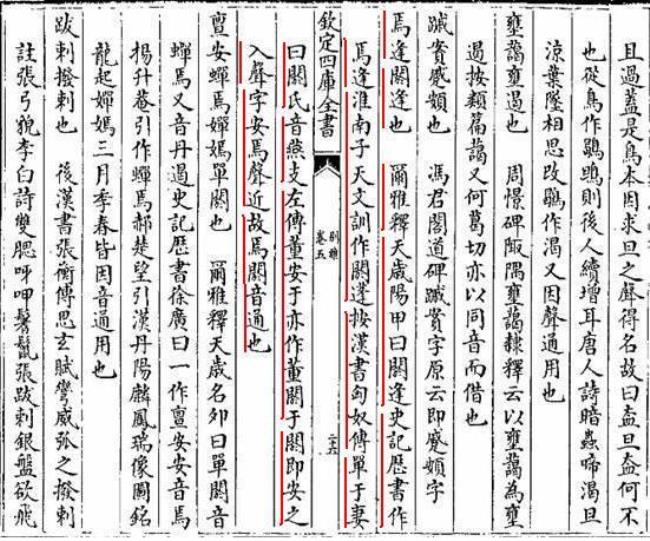 且過蓋是鳥本因求旦之聲得名故曰盍旦盍何不
也從鳥作鶡鴠則後人續增耳唐人詩暗蟲啼渴旦
涼葉墜相思改鶡作渴又因聲通用也
壅藹壅遏也 周憬碑陬隅壅藹隸釋云以壅藹為壅
遏按類篇藹又何葛切亦以同音而借也
蹙頞也 馮君閣道碑字原云即蹙頞字
焉逢閼逢也 爾雅釋天歲陽甲曰閼逢史記歷書作
焉逢淮南子天文訓作閼蓬按漢書匈奴傳單于妻
欽定四庫全書
別雅
卷五
二十六
曰閼氏音燕支左傳董安于亦作董閼于閼即安之
入聲字安焉聲近故焉閼音通也
亶安蟬焉嬋嫣單閼也 爾雅釋天歲名卯曰單閼音
蟬焉又音丹遏史記歷書徐廣曰一作亶安安音焉
楊升菴引作蟬焉郝楚望引漢丹陽麟鳳瑞像圖銘
龍起嬋嫣三月季春皆因音通用也
跋剌撥剌也 後漢書張衡傳思玄賦彎威弧之撥剌
註張弓貌李白詩雙腮呀呷鬐鬣張跋剌銀盤欲飛